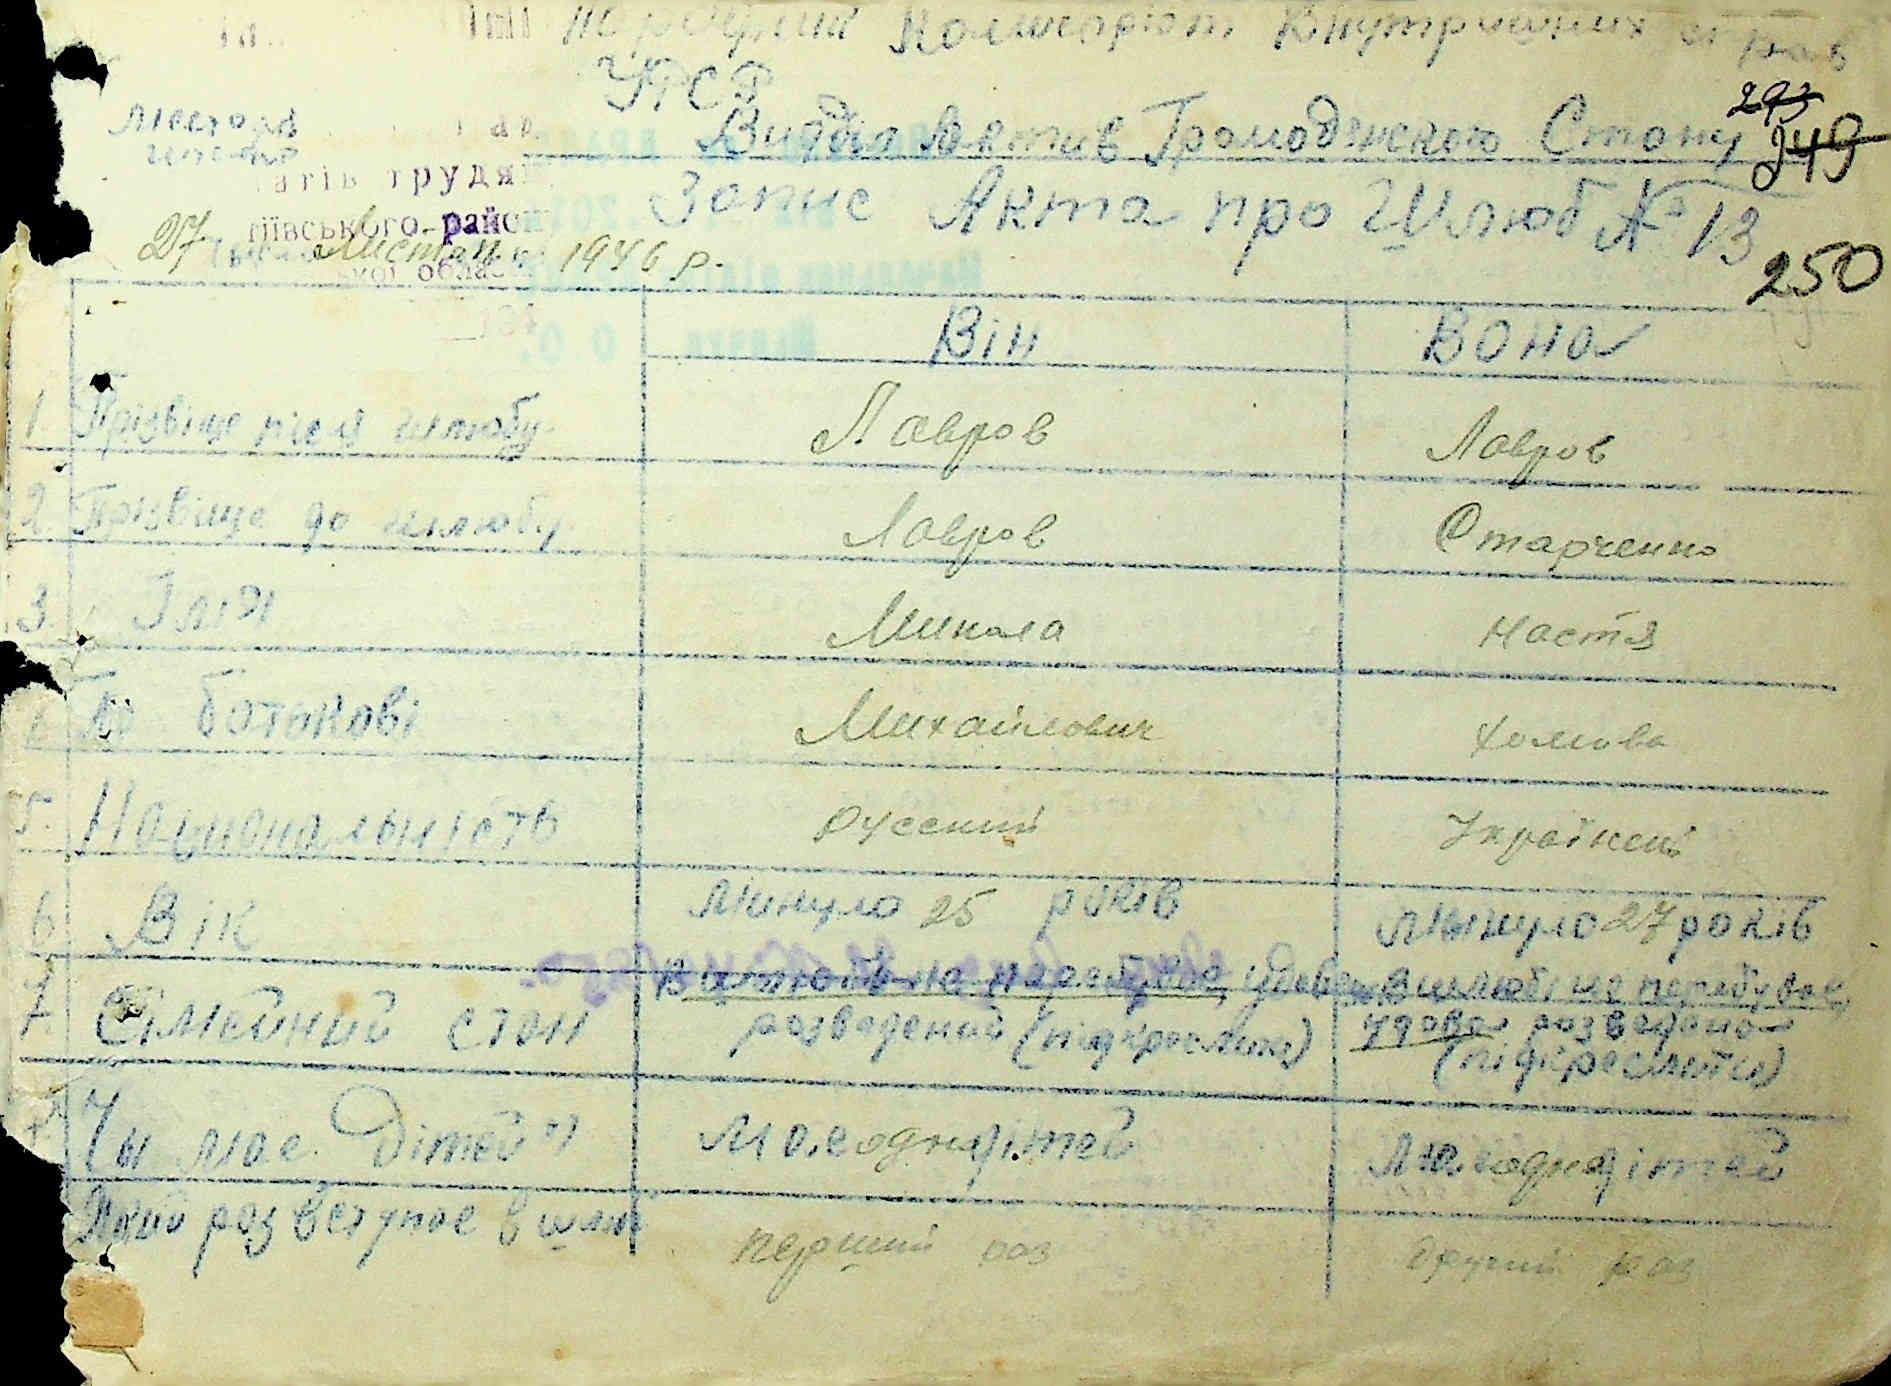 Комісаріят Внутрішніх справ
УРСР
Видділ Актив Громодянского Стану
293
249
Запис Акта про Шлюб № 13
250
27 Листоп. 1946 р.
Він Вона
1. Прізвіще після шлюбу Лавров Лавров
2. Прізвіще до шлюбу Лавров Старченко
3. Імя Микола Настя
По батькові Михайлович Хомовна
5. Національність Русский Українец
6. Вік Минуло 25 років Минуло 27 років
7. Сімейний стан В шлюбі не перебував, удовец, розведений (підкреслити) в шлюбі не перебувала удова розведена (підкреслити)
Чы має дітей Має одна дітей Має одна дітей
Який раз вступає в шлюб перший раз другий раз